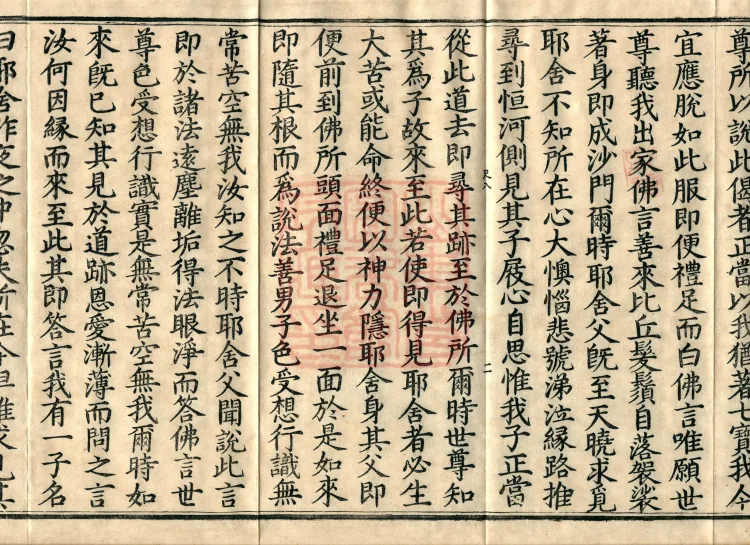 尊所以說此偈者正當以我猶著七寶我今
宜應脫如此服即便禮足而白佛言唯願世
尊聽我出家佛言善來比丘髮鬚自落袈裟
著身即成沙門爾時耶舍父旣至天曉求覓
耶舍不知所在心大懊惱悲號涕泣緣路推
尋到恒河側見其子屐心自思惟我子正當
二
從此道去即尋其跡至於佛所爾時世尊知
其爲子故來至此若使即得見耶舍者必生
大苦或能命終便以神力隱耶舍身其父即
便前到佛所頭面禮足退坐一面於是如來
即隨其根而爲說法善男子色受想行識無
常苦空無我汝知之不時耶舍父聞說此言
即於諸法遠塵離垢得法眼淨而答佛言世
尊色受想行識實是無常苦空無我爾時如
來旣已知其見於道跡恩愛漸薄而問之言
汝何因緣而來至此其即答言我有一子名
曰耶舍昨夜之中忽失所在今旦推求見其